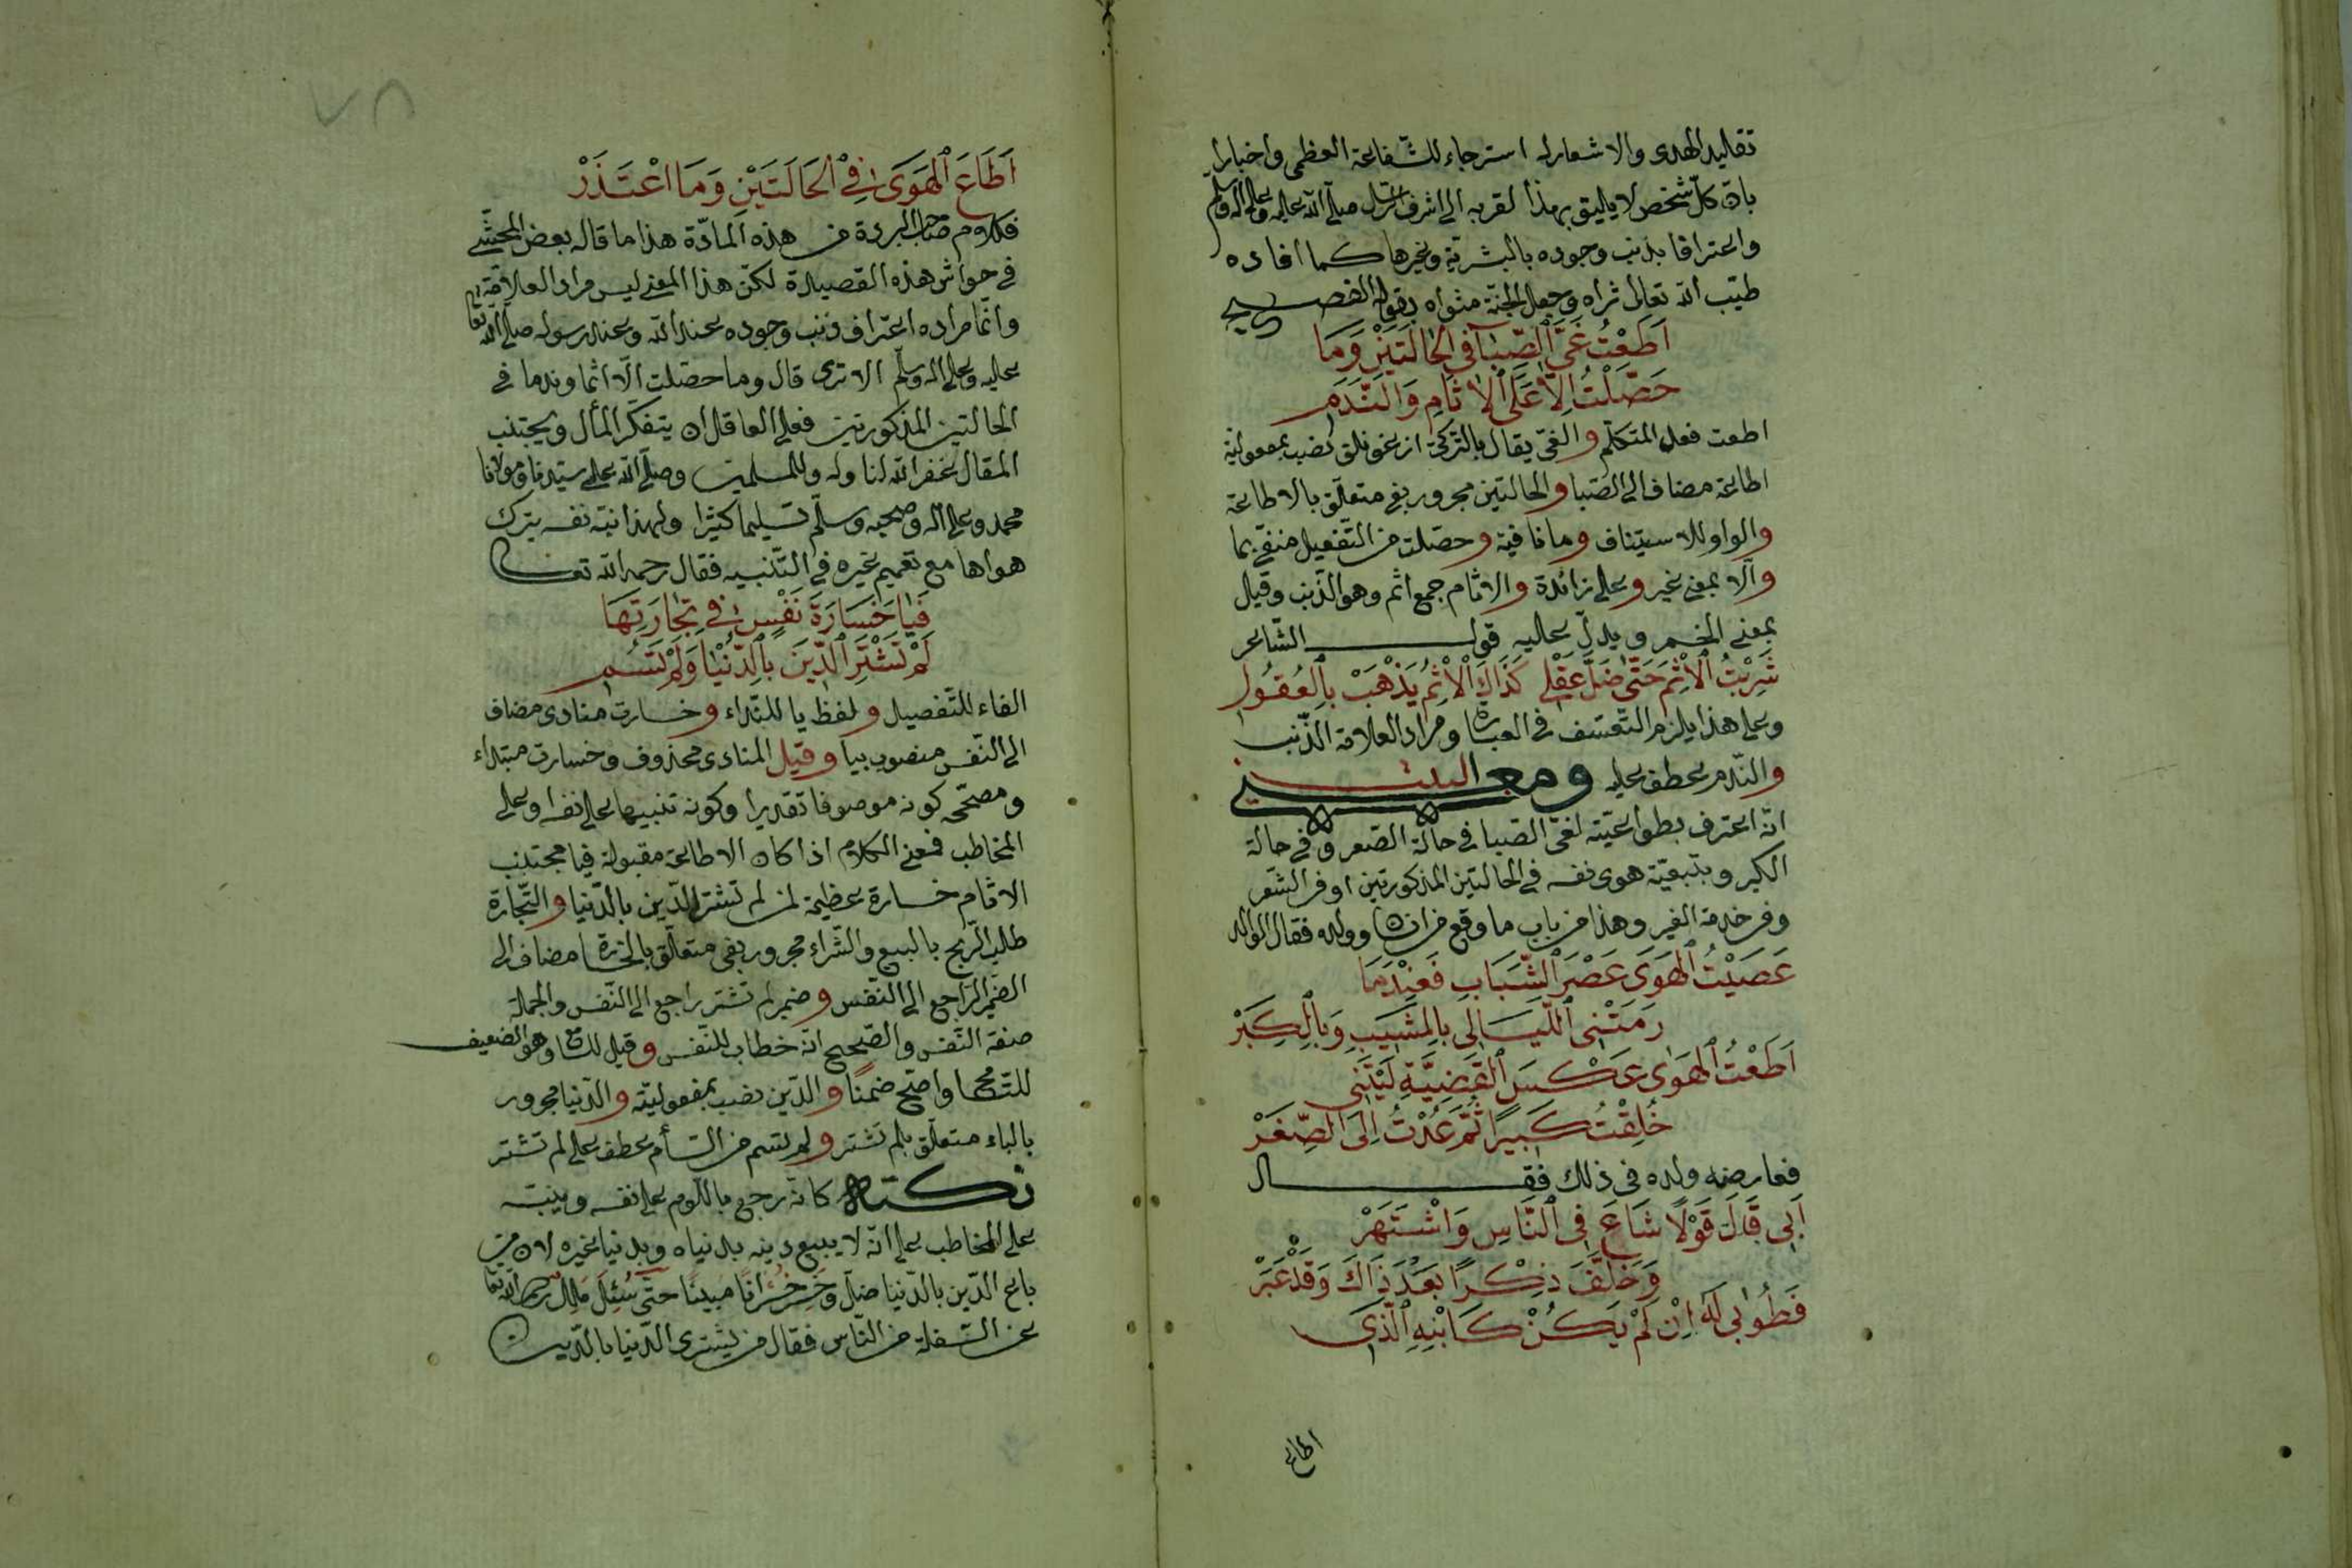 تقليد الهدى والاشعار له استرجاء للشفاعة العظمى واخبارا
بان كلّ شخص لا يليق بهذا لقربه الى اشرف الرسل صلّى الله عليه وعلى اله وسلم
واعترافا بذنب وجوده بالبشريّة وغيرها كما افاده
طيّب الله تعالى ثراه وجعل الجنّة مثواه بقوله الفصيح
اَطَعْتُ غَىَّ الصِّبَا فِى الْحَالَتَيْنِ وَمَا
حَصَّلْتُ اِلَّا عَلَى الْاٰثَامِ وَالنَّدَمِ
اطعت فعل المتكلّم والغىّ يقال بالتركى ازغونلق نصب بمفعوليّة
اطاعة مضاف الى الصّبا والحالتين مجرور بفى متعلّق بالاطاعة
والواو للاستيناف وما نافية وحصّلت من التّفعيل منفىّ بما
والّا بمعنى غير وعلى زائدة والاثام جمع اثم وهو الذّنب وقيل
بمعنى الخمر ويدلّ عليه قول الشّاعر
شَرِبْتُ الْاِثْمَ حَتّٰى ضَلَّ عَقْلِى كَذَاكَ الْاِثْمُ يَذْهَبْ بِالْعُقُولِ
وعلى هذا يلزم التّعسّف فى العبارة ومراد العلامة الذّنب
والنّدم عطف عليه ومعنى البيت
انّه اعترف بطواعيّته لغىّ الصّبا فى حالة الصّغر وفى حالة
الكبر وبتبعيّة هوى نفسه فى الحالتين المذكورتين او فى الشّعر
وفى خدمة الغير وهذا من باب ما وقع من انسان وولده فقال الوالد
عَصَيْتُ الْهَوَى عَصْرَ الشَّبَابِ فَعِنْدَمَا
رَمَتْنِى اللَّيَالِى بِالْمَشِيبِ وَبِالْكِبَرْ
اَطَعْتُ الْهَوٰى عَكْسَ الْقَضِيَّةِ لَيْتَنِى
خُلِقْتُ كَبِيرًا ثُمَّ عُدْتُ اِلَى الصِّغَرْ
فعارضه ولده فى ذلك فقال
اَبِى قَالَ قَوْلًا شَاعَ فِى النَّاسِ وَاشْتَهَرْ
وَخَلَّفَ ذِكْرًا بَعْدَ ذَاكَ وَقَدْ غَبَرْ
فَطُوبٰى لَهُ اِنْ لَمْ يَكُنْ كَابْنِهِ الَّذِى
اطاع
٧٨
اَطَاعَ الْهَوَى فِى الْحَالَتَيْنِ وَمَا اعْتَذَرْ
فكلام صاحب البردة من هذه المادّة هذا ما قاله بعض المحشّى
فى حواش هذه القصيدة لكنّ هذا المعنى ليس مراد العلامة
وانّما مراده اعتراف ذنب وجوده عند الله وعند رسوله صلّى الله تعالى
عليه وعلى اله وسلّم الا ترى قال وما حصّلت الّا اثما وندما فى
الحالتين المذكورتين فعلى العاقل ان يتفكّر المأل ويجتنب
المقال غفر الله لنا وله وللمسلمين وصلّى الله على سيّدنا ومولانا
محمد وعلى اله وصحبه وسلّم تسليما كثيرا ولهذا نبّه نفسه بترك
هواها مع تعميم غيره فى التّنبيه فقال رحمه الله تعالى
فَيَا خَسَارَةَ نَفْسٍ فِى تِجَارَتِهَا
لَمْ تَشْتَرِ الدِّينَ بِالدُّنْيَا وَلَمْ تَسُمِ
الفاء للتّفصيل ولفظ يا للنّداء وخسارت منادى مضاف
الى النّفس منصوب بيا وقيل المنادى محذوف وخسارت مبتداء
ومصحّحه كونه موصوفا تقديرا وكونه تنبيها على نفسه وعلى
المخاطب فمعنى الكلام اذا كان الاطاعة مقبولة فيا مجتنب
الاثام خسارة عظيمة لمن لم تشتر الدّين بالدّنيا والتّجارة
طلب الرّبح بالبيع والشّراء مجرور بفى متعلّق بالخسارة مضاف الى
الضّمير الرّاجع الى النّفس وضمير لم تشتر راجع الى النّفس والجملة
صفة النّفس والصّحيح انّه خطاب للنّفس وقيل للسامع وهو الضعيف
واضح ضمنًا والدّين نصب بمفعوليّته والدّنيا مجرور
بالباء متعلّق بلم تشتر ولم تسم من السّأم عطف على لم تشتر
نكتة كانّه رجع باللّوم على نفسه وينبّه
على المخاطب على انّه لا يبيع دينه بدنياه وبدنيا غيره لان من
باع الدّين بالدّنيا ضلّ وخَسِر خُسْرانًا مبينًا حتّى سُئِلَ مالك رحمه الله تعالى
عن السّفلة من النّاس فقال من يشترى الدّنيا بالدّين